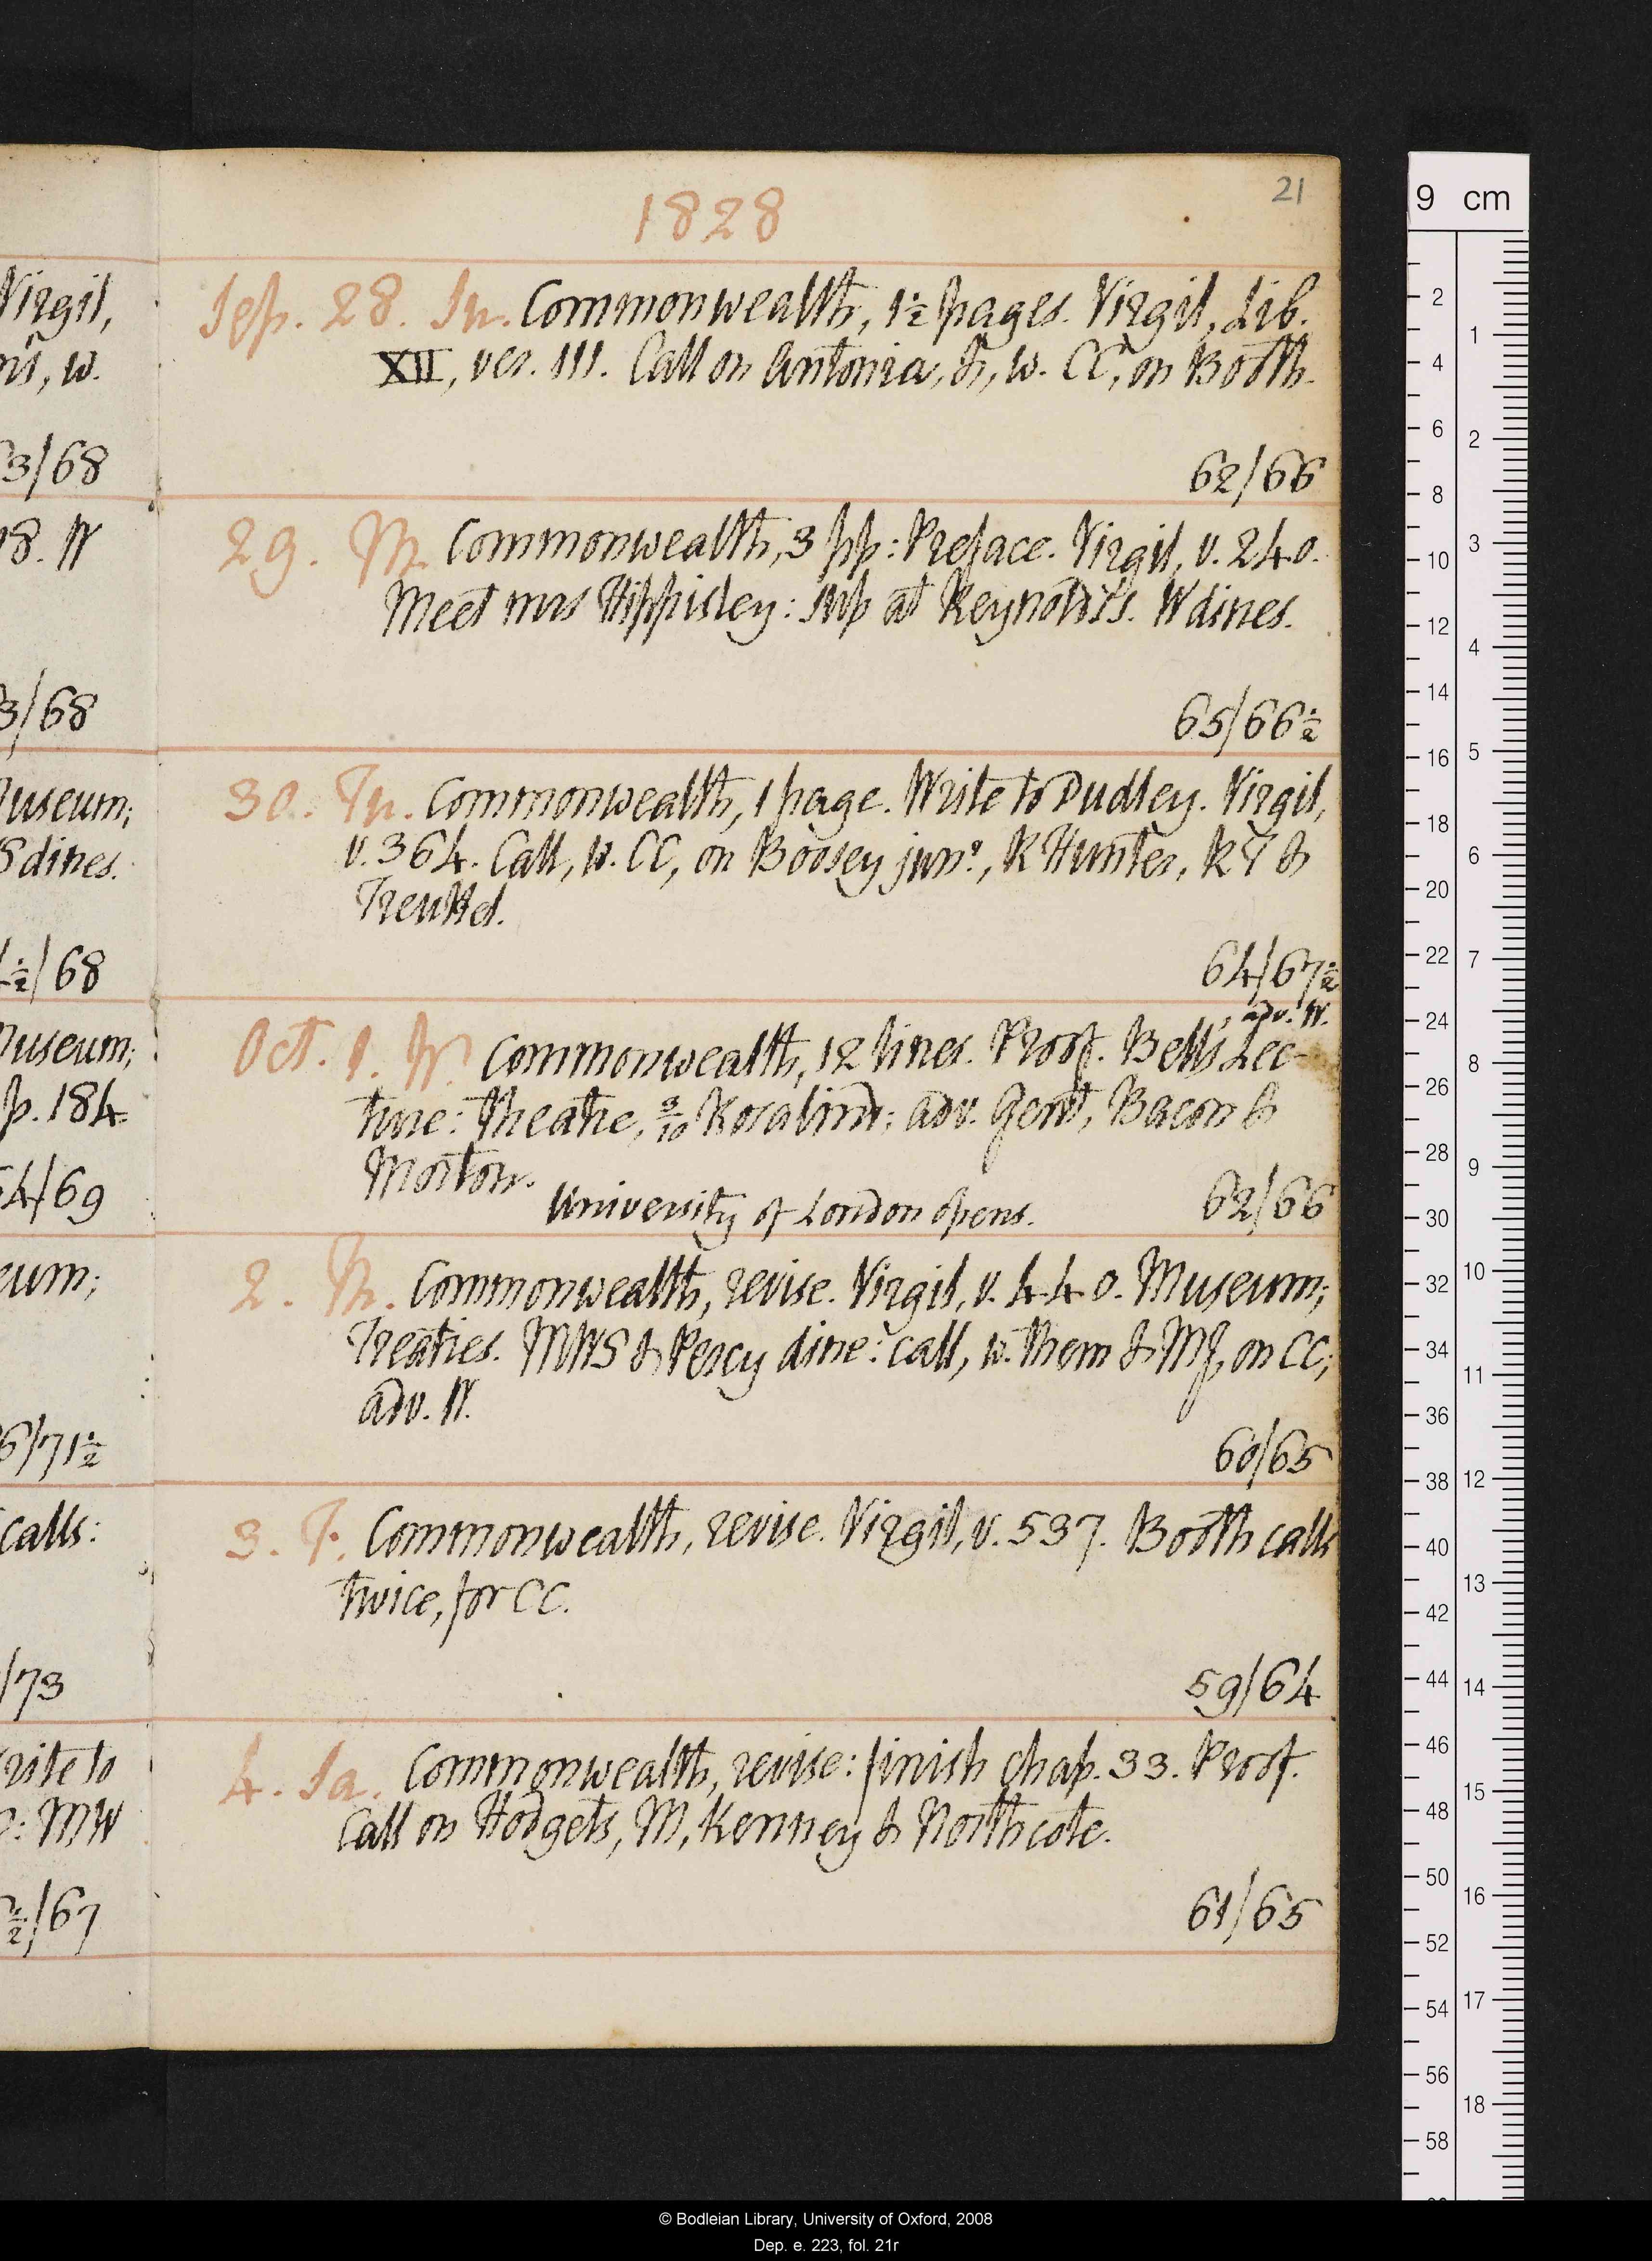 21
1828
Sep. 28. Su. Commonwealth, 1½ pages. Virgil, Lib.
XII, ver. 111. Call on Antonia, &, w. CC, on Booth.
62/66
29. M. Commonwealth, 3 pp: Preface. Virgil, v. 240.
Meet mrs Hippisley: sup at Reynolds's. W dines.
65/66½
30. Tu. Commonwealth, 1 page. Write to Dudley. Virgil,
v. 364. Call, w. CC, on Boosey junr., R Hunter, RT &
Treuttel.
64/67½
adv. W.
Oct. 1. W. Commonwealth, 12 lines. Proof. Bell's Lec-
ture: theatre, 3/10 Rosalind; adv. Gent, Bacon &
Morton.
University of London opens.
62/66
2. Th. Commonwealth, revise. Virgil, v. 440. Museum;
Treaties. MWS & Percy dine: call, w. them & MJ, on CC;
adv. W.
60/65
3. F. Commonwealth, revise. Virgil, v. 537. Booth calls
twice, for CC.
59/64
4. Sa. Commonwealth, revise: finish chap. 33. Proof.
Call on Hodgets, M, Kenney & Northcote.
61/65
Virgil,
w.
3/68
18. W
3/68
useum;
dines.
½/68
useum;
p. 184
4/69
eum;
6/71½
calls:
/73
rite to
: MW
½/67
9 cm
2
4
6
8
10
12
14
16
18
20
22
24
26
28
30
32
34
36
38
40
42
44
46
48
50
52
54
56
58
1
2
3
4
5
6
7
8
9
10
11
12
13
14
15
16
17
18
© Bodleian Library, University of Oxford, 2008
Dep. e. 223, fol. 21r